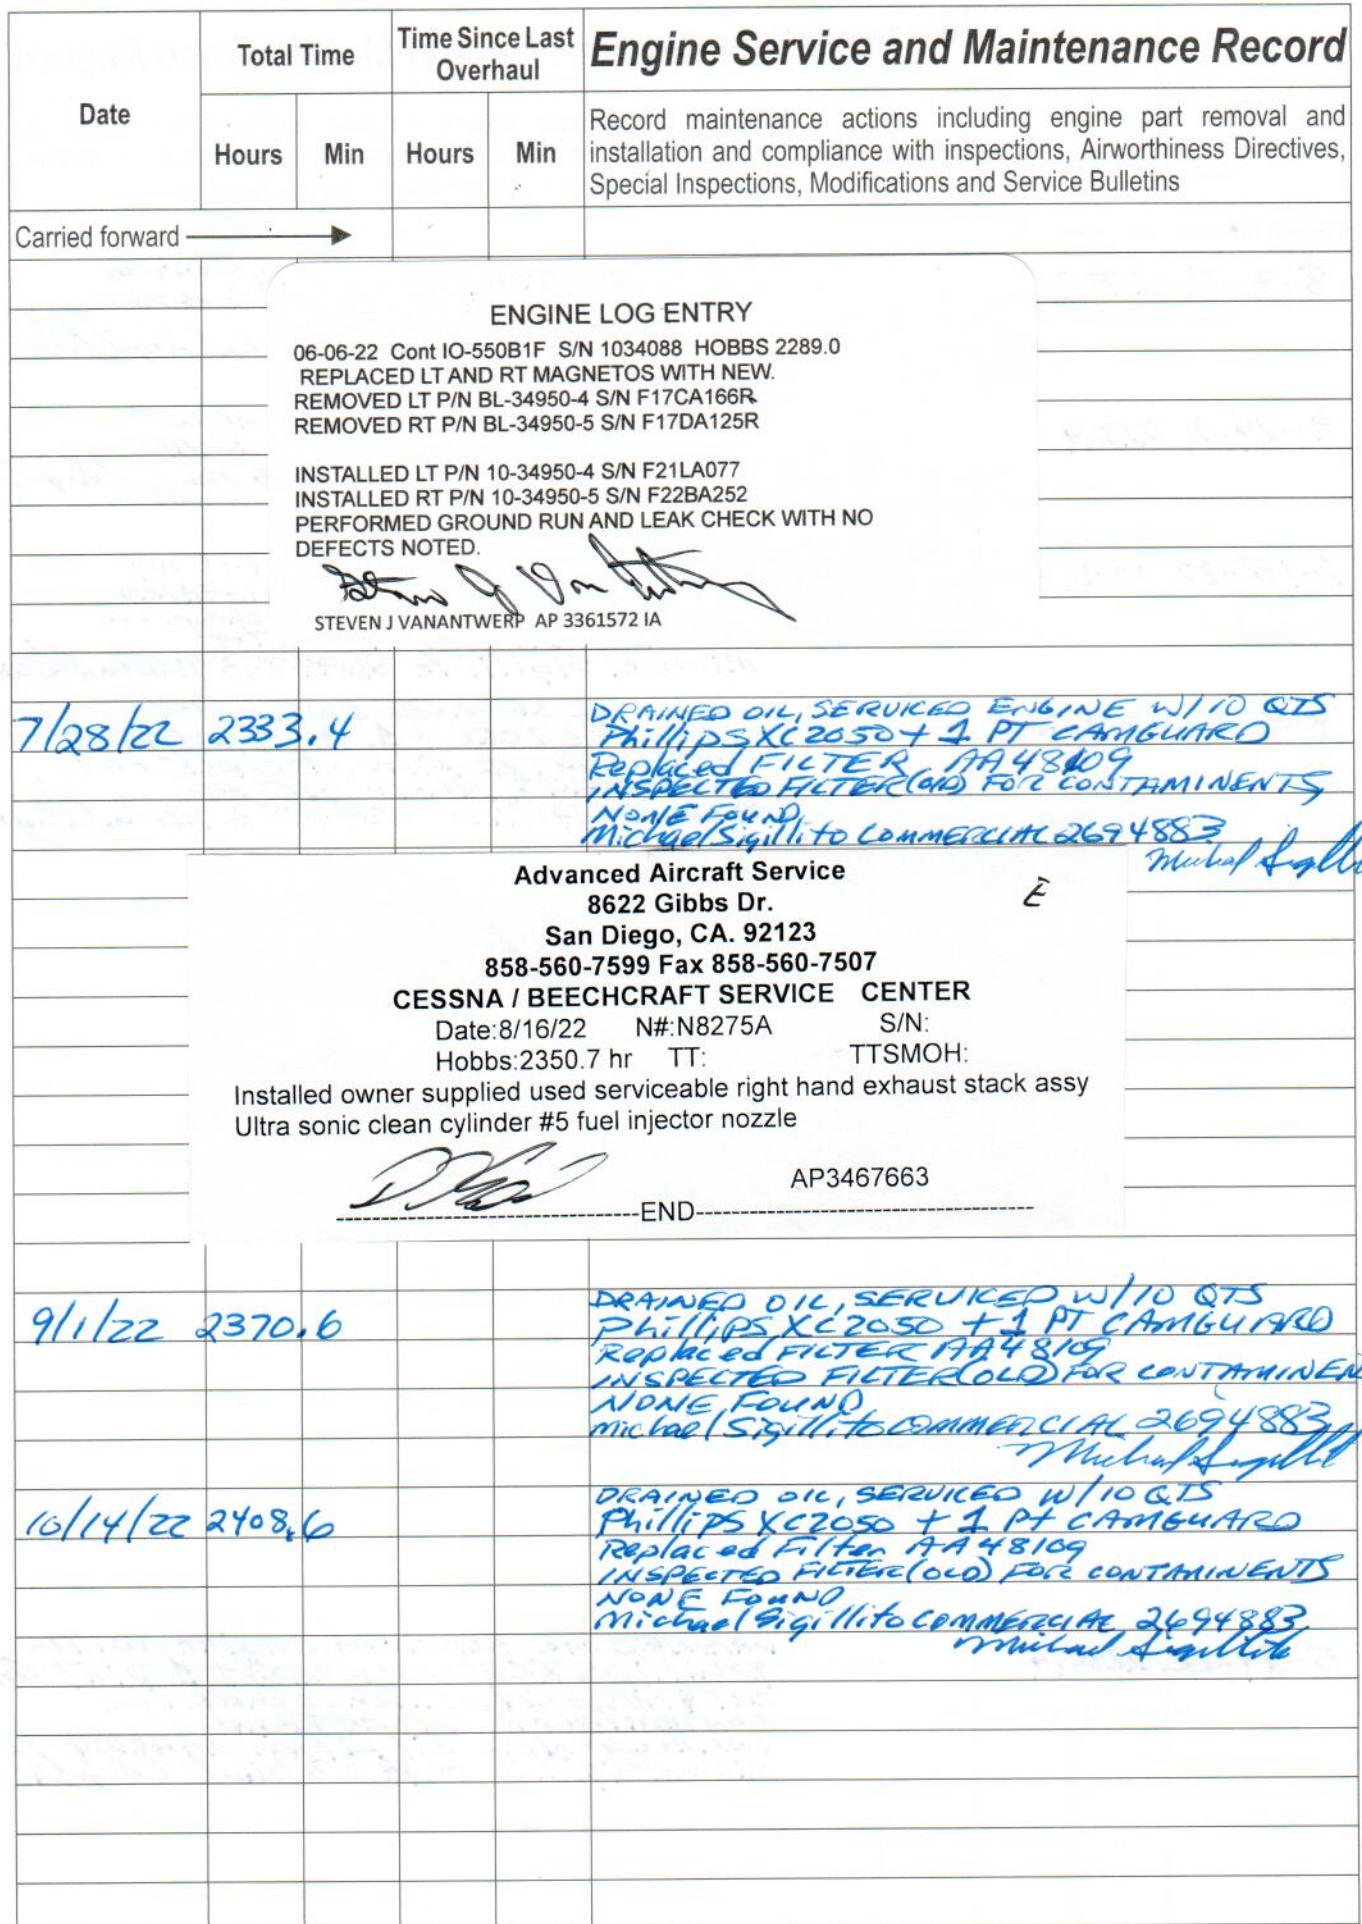 Date
Total Time
Time Since Last
Overhaul
Engine Service and Maintenance Record
Hours
Min
Hours
Min
Record maintenance actions including engine part removal and
installation and compliance with inspections, Airworthiness Directives,
Special Inspections, Modifications and Service Bulletins
Carried forward
ENGINE LOG ENTRY
06-06-22 Cont IO-550B1F S/N 1034088 HOBBS 2289.0
REPLACED LT AND RT MAGNETOS WITH NEW.
REMOVED LT P/N BL-34950-4 S/N F17CA166R
REMOVED RT P/N BL-34950-5 S/N F17DA125R
INSTALLED LT P/N 10-34950-4 S/N F21LA077
INSTALLED RT P/N 10-34950-5 S/N F22BA252
PERFORMED GROUND RUN AND LEAK CHECK WITH NO
DEFECTS NOTED.
STEVEN J VANANTWERP AP 3361572 IA
7/28/22 2333.4 DRAINED OIL, SERVICED ENGINE W/10 QTS
Phillips XC 2050 + 1 PT CAMGUARD
Replaced FILTER AA48109
INSPECTED FILTER (OLD) FOR CONTAMINENTS
NONE FOUND.
Michael Sigillito COMMERCIAL 2694883
Advanced Aircraft Service
E
8622 Gibbs Dr.
San Diego, CA. 92123
858-560-7599 Fax 858-560-7507
CESSNA / BEECHCRAFT SERVICE CENTER
Date:8/16/22 N#:N8275A S/N:
Hobbs:2350.7 hr TT: TTSMOH:
Installed owner supplied used serviceable right hand exhaust stack assy
Ultra sonic clean cylinder #5 fuel injector nozzle
AP3467663
-----END-----
9/1/22 2370.6 DRAINED OIL, SERVICED W/10 QTS
Phillips XC2050 + 1 PT CAMGUARD
Replaced FILTER AA48109
INSPECTED FILTER (OLD) FOR CONTAMINEN
NONE FOUND
Michael Sigillito COMMERCIAL 2694883
10/14/22 2408.6 DRAINED OIL, SERVICED W/10 QTS
Phillips XC2050 + 1 Pt CAMGUARD
Replaced Filter AA48109
INSPECTED FILTER (OLD) FOR CONTAMINENTS
NONE FOUND
Michael Sigillito COMMERCIAL 2694883
Michael Sigillito